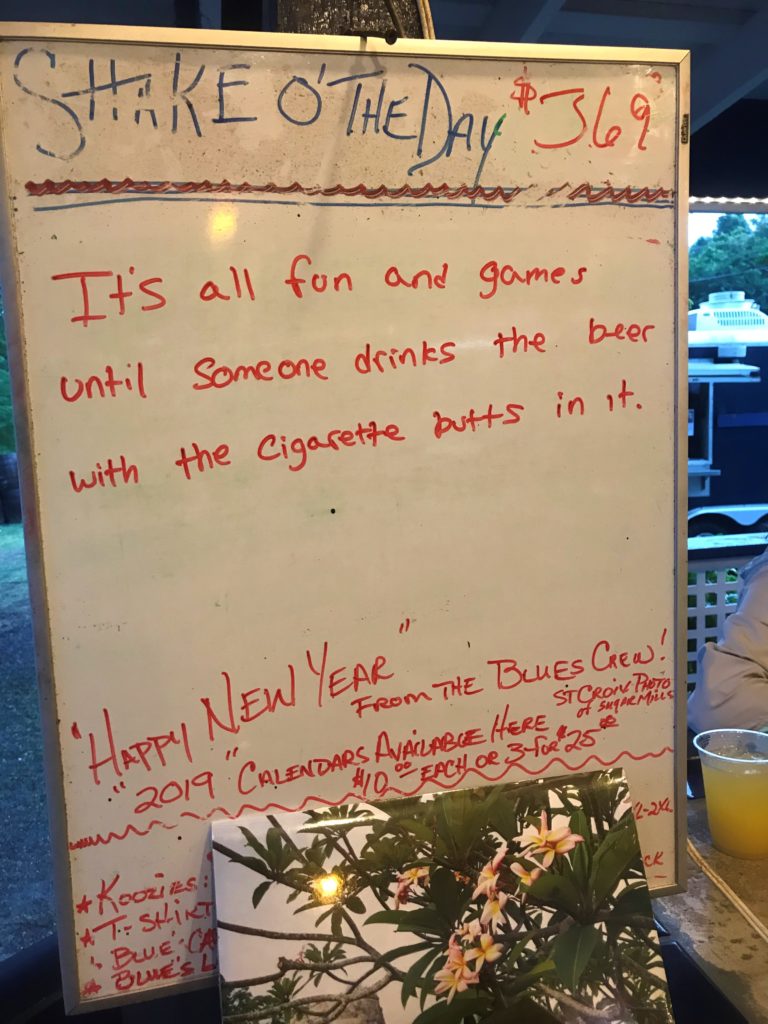 SHAKE O' THE DAY $369
It's all fun and games
until someone drinks the beer
with the cigarette butts in it.
"HAPPY NEW YEAR"
FROM THE BLUES CREW!
"2019" CALENDARS AVAILABLE HERE
ST CROIX PHOTO
of Sugar Mills
$10.00 EACH OR 3 for $25.00
-2XL.
* KOOZIES:
* T-SHIRT
CK
"BLUE" CA
* BLUE'S L